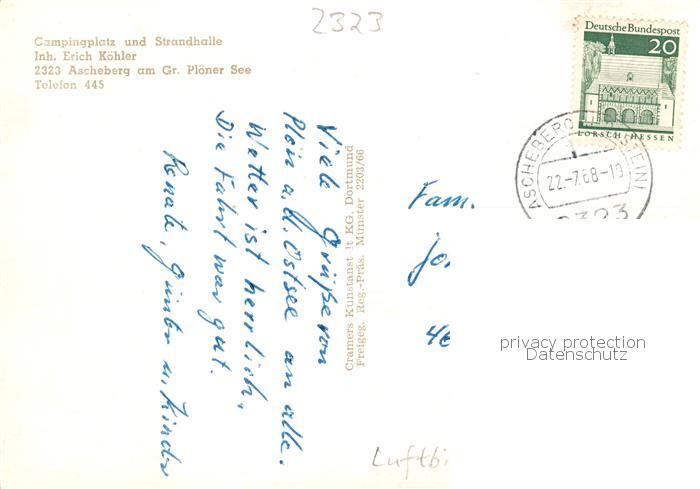 2323
Campingplatz und Strandhalle
Inh. Erich Köhler
2323 Ascheberg am Gr. Plöner See
Telefon 445
Deutsche Bundespost
20
LORSCH/HESSEN
ASCHEBERG (HOLSTEIN)
22.-7.68-19
2323
Viele Grüße von
Plön a.d. Ostsee an alle.
Wetter ist herrlich.
Die Fahrt war gut.
Renate, Günter u. Kinder
Cramers Kunstanstalt KG. Dortmund
Freigeg. Reg.-Präs. Münster 2203/66
Fam.
Jo
46
privacy protection
Datenschutz
Luftbi